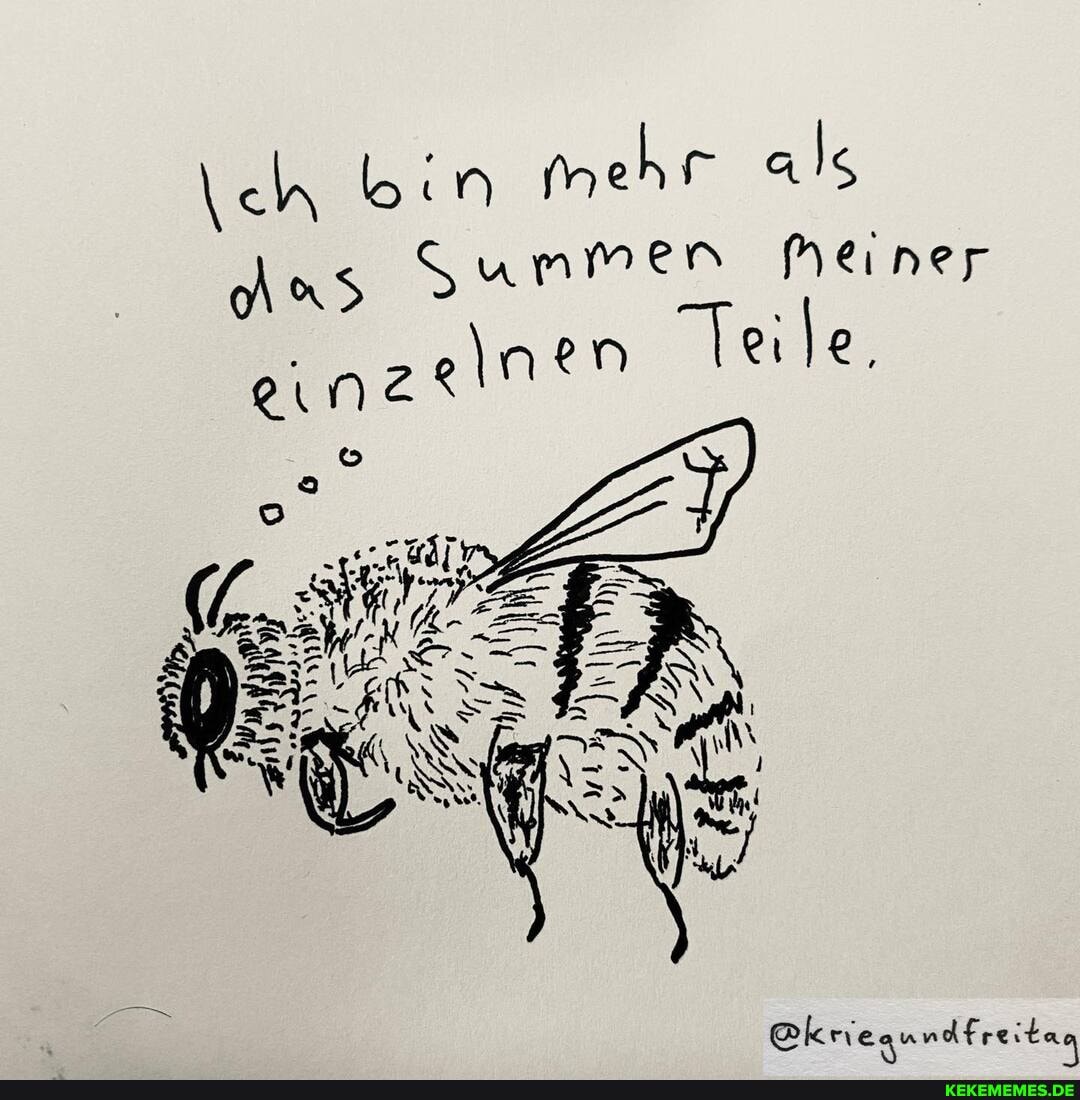 Ich bin mehr als
das Summen meiner
einzelnen Teile.
@kriegundfreitag
KEKEMEMES.DE